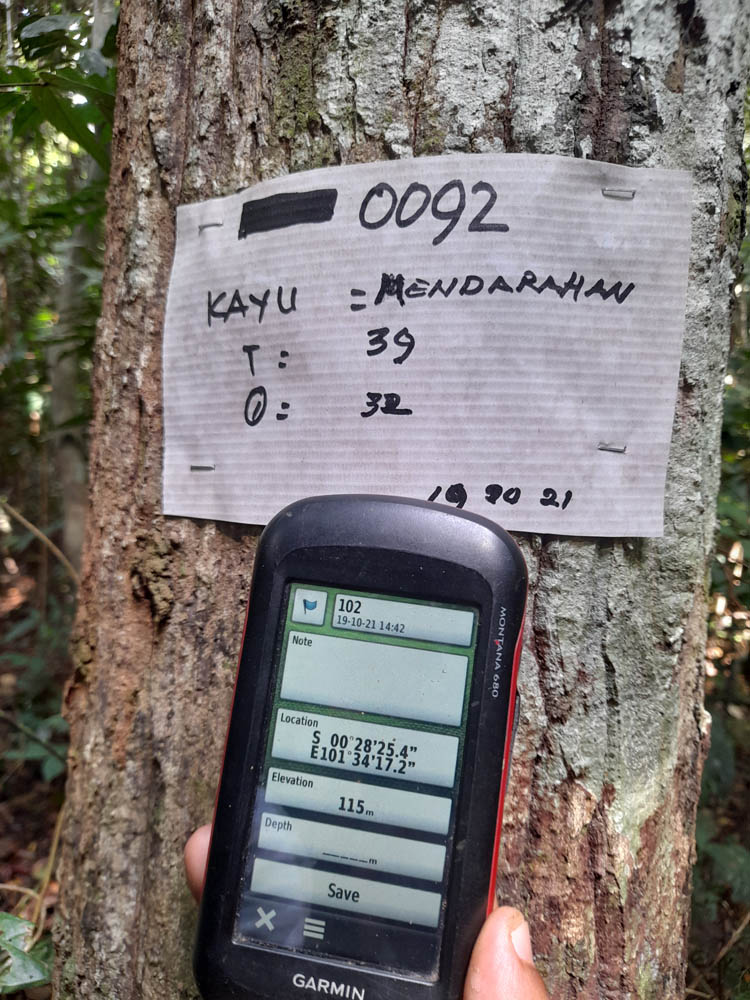 0092
KAYU = MENDARAHAN
T: 39
Ø = 32
19 90 21
MONTANA 680
102
19-10-21 14:42
Note
Location
S 00°28'25.4"
E101°34'17.2"
Elevation
115m
Depth
_____m
Save
GARMIN